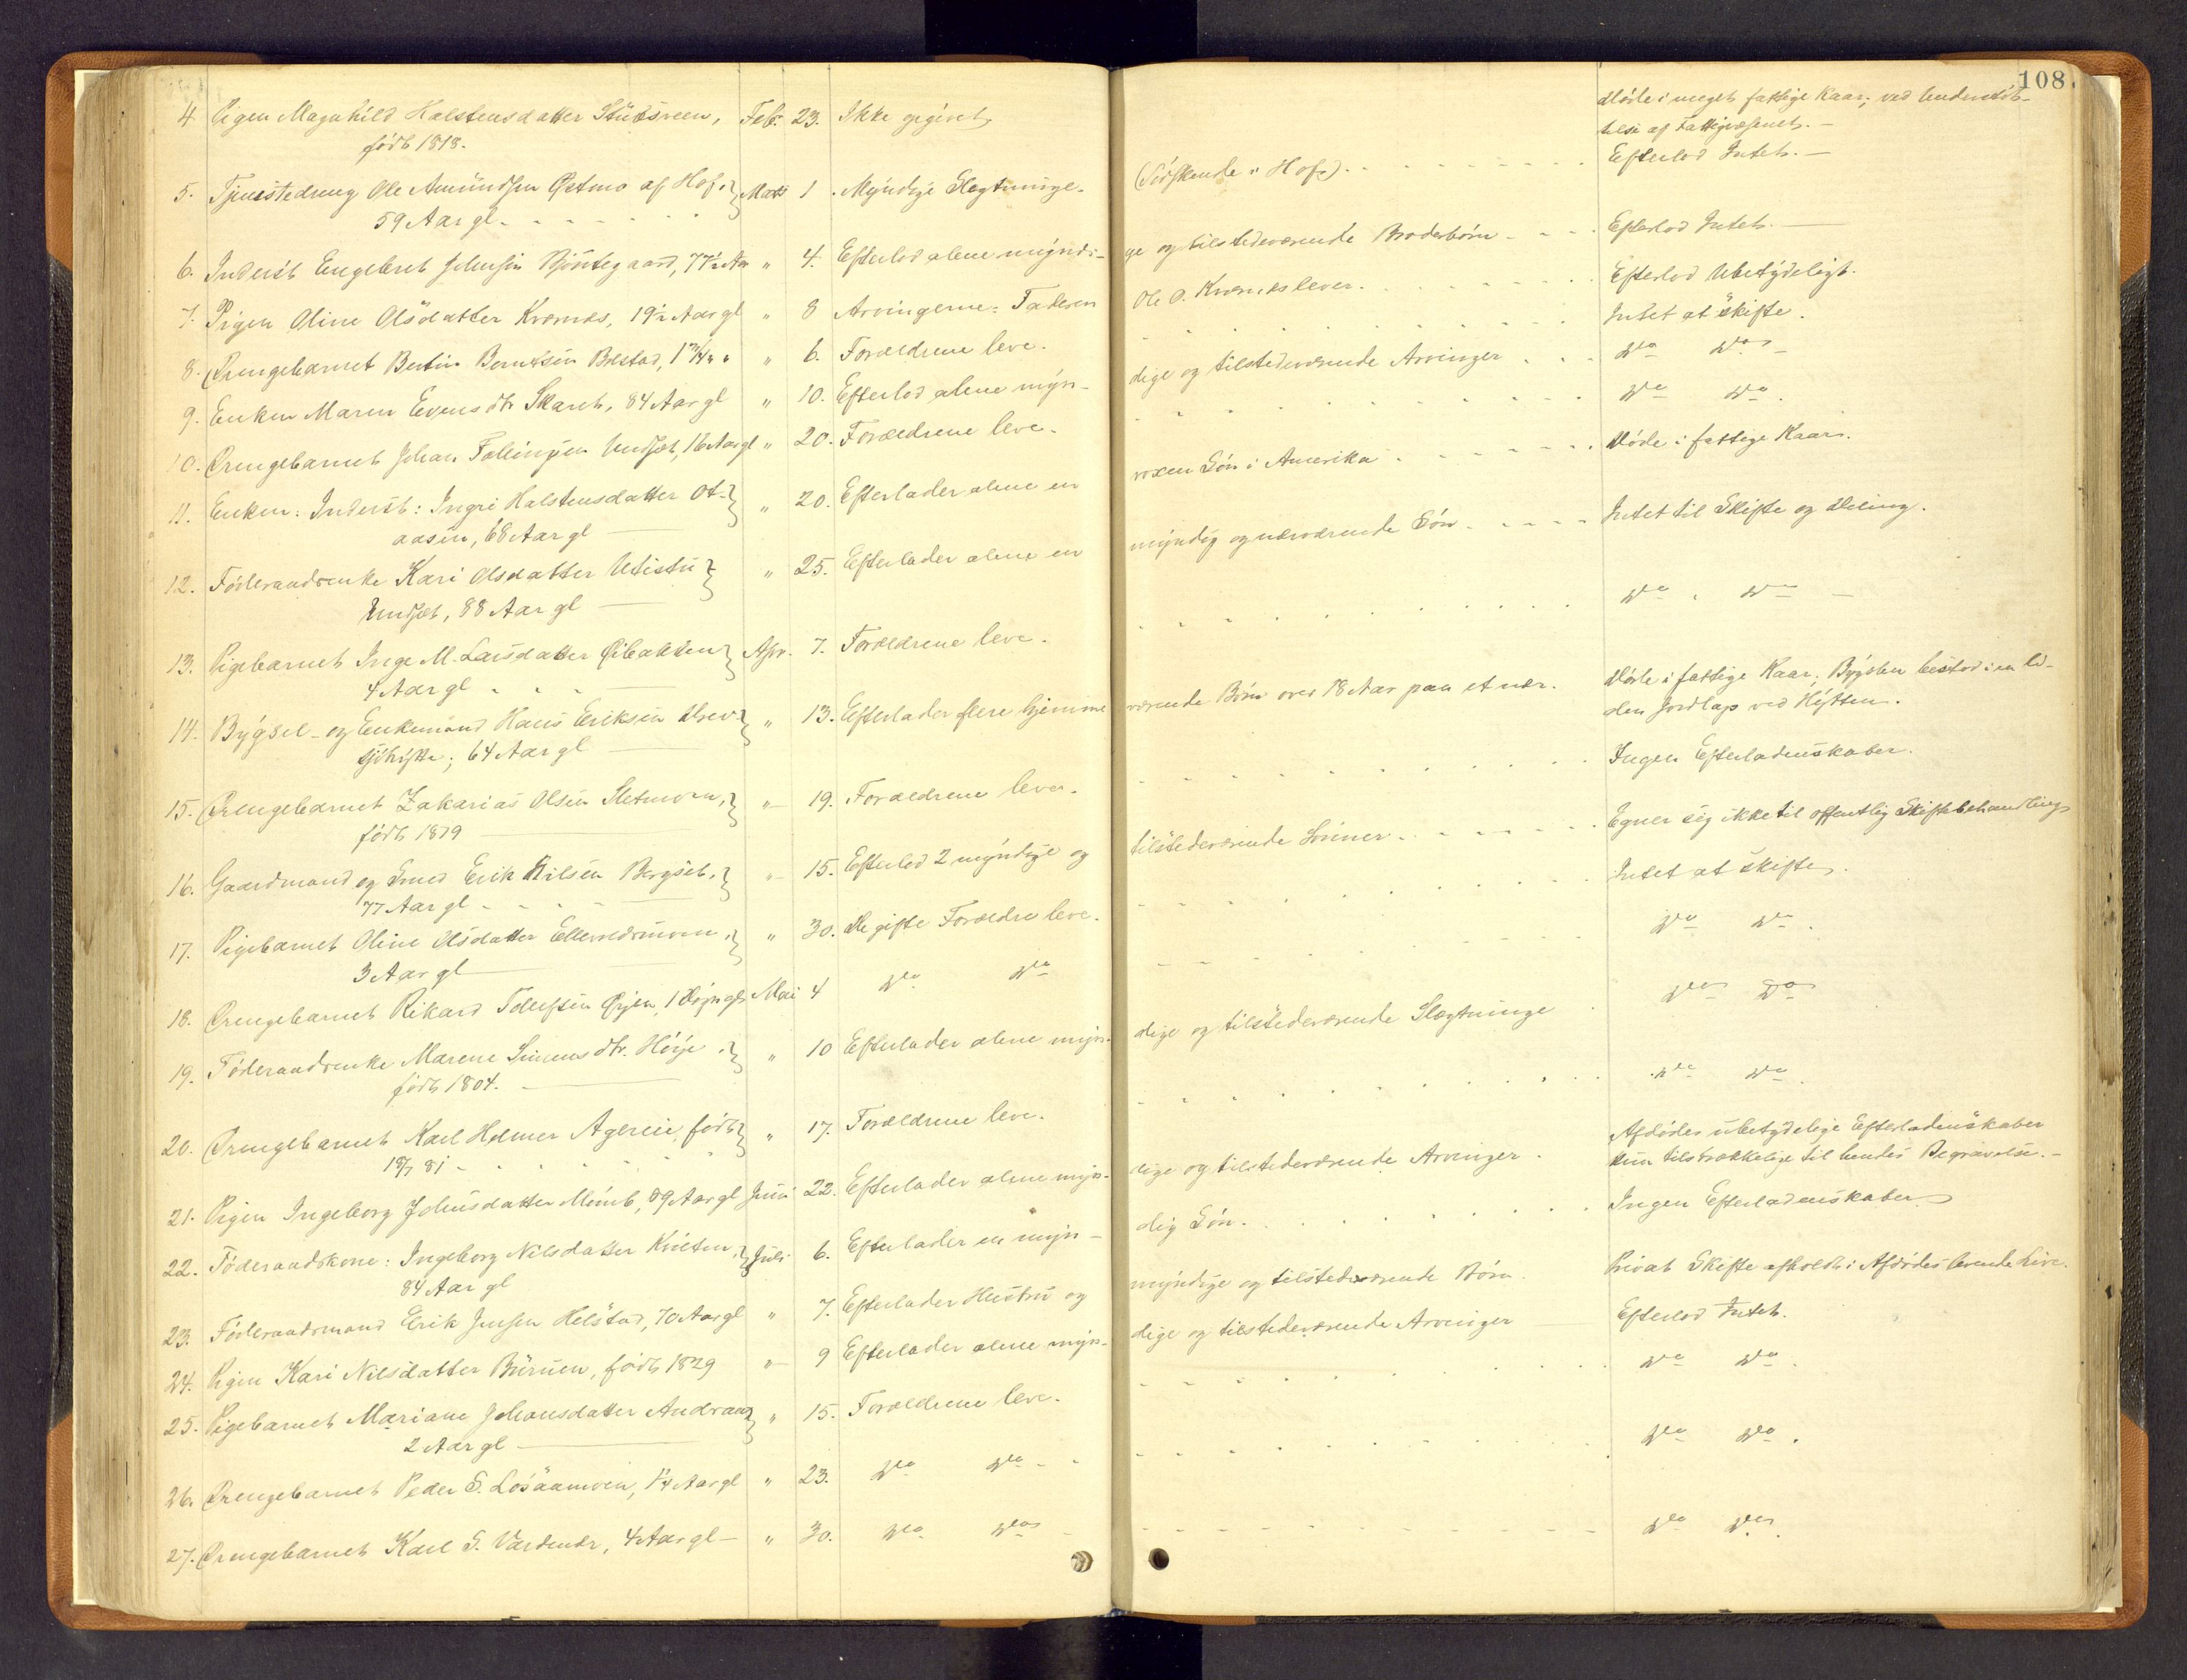 108.
4. Pigen Magnhild Halstensdatter Stubsveen, Febr. 23. Ikke opgivet. Døde i meget fattige Kaar, ved Understøt-
født 1818. telse af Fattigvæsenet. —
5. Tjenestedreng Ole Amundsen Østmo af Hof, Marts 1. Myndige Slegtninge. (Sødskende i Hof). Efterlod Intet. —
59 Aar gl.
6. Inderst Engebret Johnsen 77½ Aar " 4. Efterlod alene myndi-ge og tilstedeværende Broderbørn Efterlod Intet. —
7. Pigen Oline Olsdatter Kvernes, 19½ Aar gl " 8 Arvingerne: Faderen Ole O. Kvernes lever. Efterlod Ubetydeligt.
8. Drengebarnet Bertin Berntsen Bolstad, " 6. Forældrene leve. Intet at skifte.
9. Enken Maren Evensdtr Skaret, 84 Aar gl " 10. Efterlod alene myn-dige og tilstedeværende Arvinger do do
10. Drengebarnet Johan Undset, 16 Aar gl " 20. Forældrene leve. do do.
11. Enken: Inderst: Ingri Halstensdatter Ot- " 20. Efterlader alene en voxen Søn i Amerika Døde i fattige Kaar.
aasen, 68 Aar gl —
12. Føderaadsenke Kari Olsdatter Utistu " 25. Efterlader alene en myndig og nærværende Søn Intet til Skifte og Deling.
Undset, 88 Aar gl —
13. Pigebarnet Inge M. Larsdatter Øibakken Apr. 7. Forældrene leve. do do —
4 Aar gl
14. Bygsel- og Enkemand Hans Eriksen Drev- " 13. Efterlader flere hjemme værende Børn over 18 Aar paa et nær. Døde i fattige Kaar; Bygslen bestod i en li-
sjøhytte; 64 Aar gl — den Jordlap ved Hytten.
15. Drengebarnet Zakarias Olsen Sletmoen, " 19. Forældrene lever. Ingen Efterladenskaber.
født 1879
16. Gaardmand og Smed Erik Nilsen Bergset, " 15. Efterlod 2 myndige og tilstedeværende Sønner Egner sig ikke til offentlig Skiftebehandling
77 Aar gl
17. Pigebarnet Oline Olsdatter " 30. De gifte Forældre leve. Intet at skifte.
3 Aar gl
18. Drengebarnet Rikard Tollefsen Øyen, 1 Døgn gl Mai 4 do do do do.
19. Føderaadsenke Marene Simensdtr. Høye " 10 Efterlader alene myn-dige og tilstedeværende Slægtninge do do
født 1804.
20. Drengebarnet Karl Helmer Agereie, født " 17. Forældrene leve. do do.
81
21. Pigen Ingeborg Johnsdatter 89 Aar gl Juni 22. Efterlader alene myn-dige og tilstedeværende Arvinger. Afdødes ubetydelige Efterladenskaber
kun tilstrækkelige til hendes Begravelse. —
22. Føderaadskone: Ingeborg Nilsdatter Kvisten, Juli 6. Efterlader en myn-dig Søn. Ingen Efterladenskaber
84 Aar gl
23. Føderaadsmand Erik Jensen Helstad, 70 Aar gl " 7. Efterlader Hustru og myndige og tilstedeværende Børn. Privat Skifte afholdt i Afdødes levende Live.
24. Pigen Kari Nilsdatter født 1829 " 9 Efterlader alene myn-dige og tilstedeværende Arvinger Efterlod Intet.
25. Pigebarnet Mariane Johansdatter Andraa " 15. Forældrene leve. do do.
2 Aar gl
26. Drengebarnet Peder S. Losaamoen, 1¼ Aar gl " 23. do do do do.
27. Drengebarnet Karl S. 4 Aar gl — " 30. do do do do.